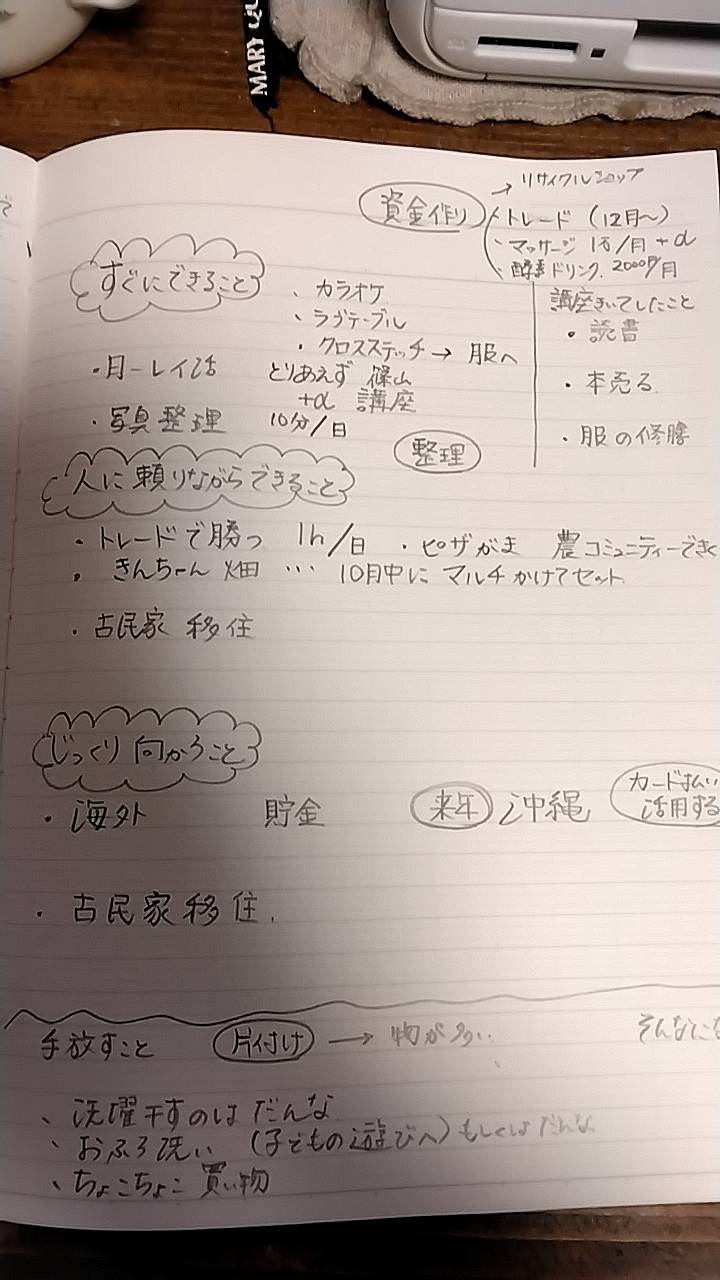 MARY QU
リサイクルショップ
資金作り
・トレード (12月〜)
・マッサージ 1万/月 +α
・酵素ドリンク. 2000円/月
すぐにできること
・カラオケ
・ラヴテーブル
・クロスステッチ → 服へ
・月一レイ活 とりあえず 篠山
+α 講座
・写真整理 10分/日
講座きいてしたこと
・読書
・本売る.
・服の修繕
整理
人に頼りながらできること
・トレードで勝つ 1h/日 ・ピザがま 農コミュニティーでき
・きんちゃん 畑 … 10月中に マルチかけてセット
・古民家 移住
じっくり向かうこと
・海外 貯金 来年 沖縄 カード払い
活用する
・古民家移住.
手放すこと 片付け → 物が多い そんなに
・洗濯干すのは だんな
・おふろ洗い (子どもの遊びへ) もしくは だんな
・ちょこちょこ買い物